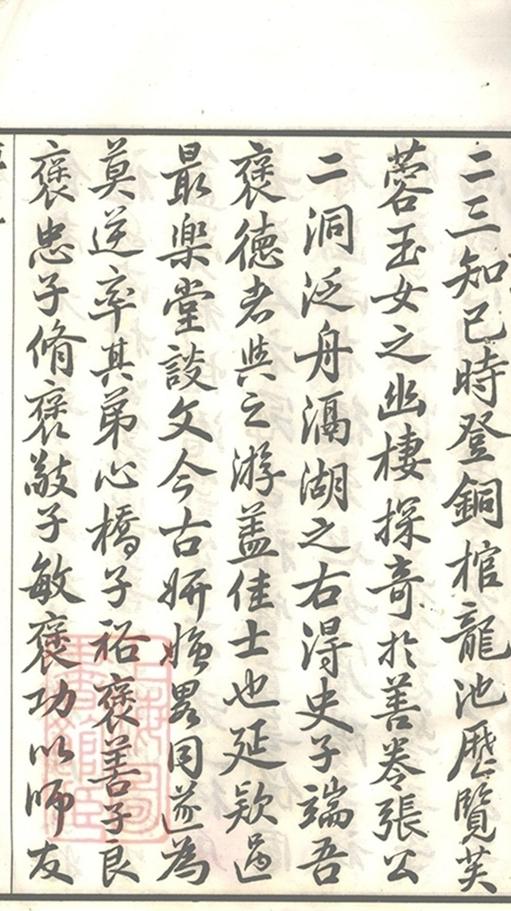 二三知己時登銅棺龍池歷覽芙
蓉玉女之幽棲探奇於善卷張公
二洞泛舟滆湖之右得史子端吾
褒德者與之游蓋佳士也延欵過
最樂堂談文今古妍媸畧同遂為
莫逆率其弟心橋子裕褒善子良
褒忠子脩褒敲子敏褒功以師友